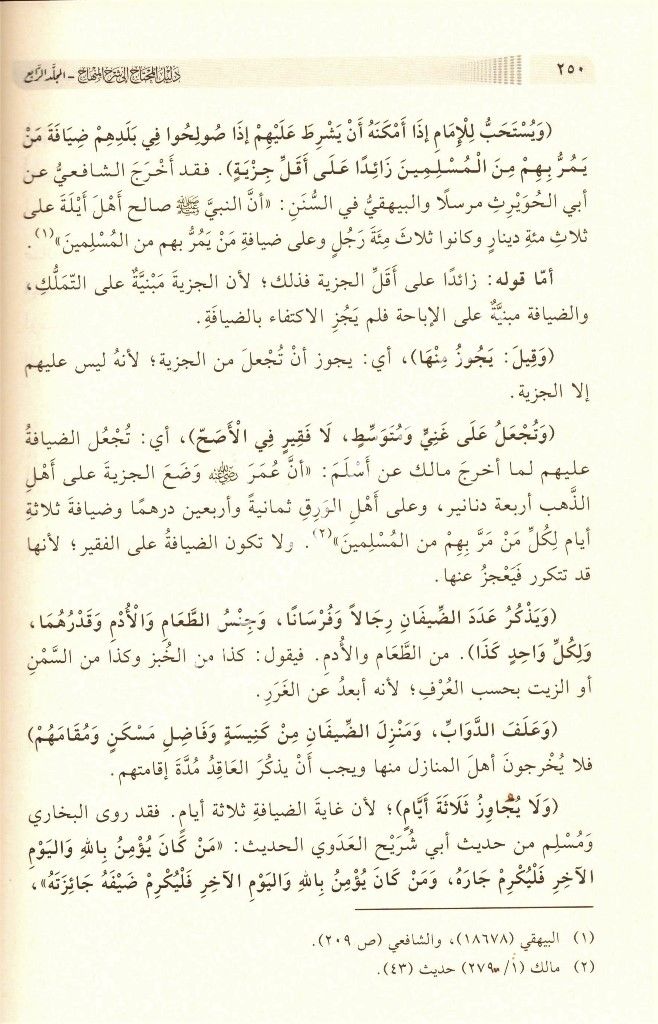 ٢٥٠
دَلِيْلُ المُحْتَاجِ إِلى شَرْحِ المِنْهَاجِ - المجلّد الرَّابع
(وَيُسْتَحَبُّ لِلْإِمَامِ إِذَا أَمْكَنَهُ أَنْ يَشْرِطَ عَلَيْهِمْ إِذَا صُولِحُوا فِي بَلَدِهِمْ ضِيَافَةَ مَنْ
يَمُرُّ بِهِمْ مِنَ الْمُسْلِمِينَ زَائِدًا عَلَى أَقَلِّ جِزْيَةٍ). فقد أَخْرَجَ الشافعيُّ عن
أبي الحُوَيْرِثِ مرسلًا والبيهقيُّ في السُّنَنِ: «أنَّ النبيَّ ﷺ صالح أَهْلَ أَيْلَةَ على
ثلاثِ مئةِ دينارٍ وكانوا ثلاثَ مِئَةِ رَجُلٍ وعلى ضيافةِ مَنْ يَمُرُّ بهم من المُسْلِمينَ»(١).
أمّا قوله: زائدًا على أَقَلِّ الجزية فذلك؛ لأن الجزيةَ مَبْنِيَّةٌ على التّمَلُّكِ،
والضيافة مبنيَّةٌ على الإباحة فلم يَجُزِ الاكتفاء بالضيافَةِ.
(وَقِيلَ: يَجُوزُ مِنْهَا)، أي: يجوز أنْ تُجْعلَ من الجزية؛ لأنهُ ليس عليهم
إلا الجزية.
(وَتُجْعَلُ عَلَى غَنِيٍّ وَمُتَوَسِّطٍ، لَا فَقِيرٍ فِي الْأَصَحّ)، أي: تُجْعُل الضيافةُ
عليهم لما أخرجَ مالك عن أَسْلَمَ: «أنَّ عُمَرَ ﷺ وَضَعَ الجزيةَ على أَهْلِ
الذَّهب أربعة دنانير، وعلى أَهْلِ الوَرِقِ ثمانيةً وأربعين درهمًا وضيافةَ ثلاثةِ
أيام لِكُلِّ مَنْ مَرَّ بِهِمْ من المُسْلِمينَ»(٢). ولا تكون الضيافةُ على الفقير؛ لأنها
قد تتكرر فَيَعْجزُ عنها.
(وَيَذْكُرُ عَدَدَ الضِّيفَانِ رِجَالاً وَفُرْسَانًا، وَجِنْسُ الطَّعَامِ وَالْأُدْمِ وَقَدْرُهُمَا،
وَلِكُلِّ وَاحِدٍ كَذَا). من الطَّعَام والأُدمِ. فيقول: كذا من الخُبز وكذا من السَّمْنِ
أو الزيت بحسب العُرْفِ؛ لأنه أبعدُ عن الغَرَرِ.
(وَعَلَفَ الدَّوَابِّ، وَمَنْزِلَ الضِّيفَانِ مِنْ كَنِيسَةٍ وَفَاضِلِ مَسْكَنٍ وَمُقَامَهُمْ)
فلا يُخْرجونَ أهلَ المنازل منها ويجب أَنْ يذكُرَ العَاقِدُ مُدَّةَ إقامتهم.
(وَلَا يُجَاوِزُ ثَلَاثَةَ أَيَّامٍ)؛ لأن غايةَ الضيافةِ ثلاثة أيامٍ. فقد روى البخاري
وَمُسْلِم من حديث أبي شُرَيْح العَدَوي الحديث: «مَنْ كَانَ يُؤْمِنُ بِاللهِ وَاليَوْمِ
الآخِرِ فَلْيُكْرِمْ جَارَهُ، وَمَنْ كَانَ يُؤْمِنُ بِاللهِ وَاليَوْمِ الآخِرِ فَلْيُكْرِمْ ضَيْفَهُ جَائِزَتَهُ»،
(١) البيهقي (١٨٦٧٨)، والشافعي (ص ٢٠٩).
(٢) مالك (١/ ٢٧٩) حديث (٤٣).